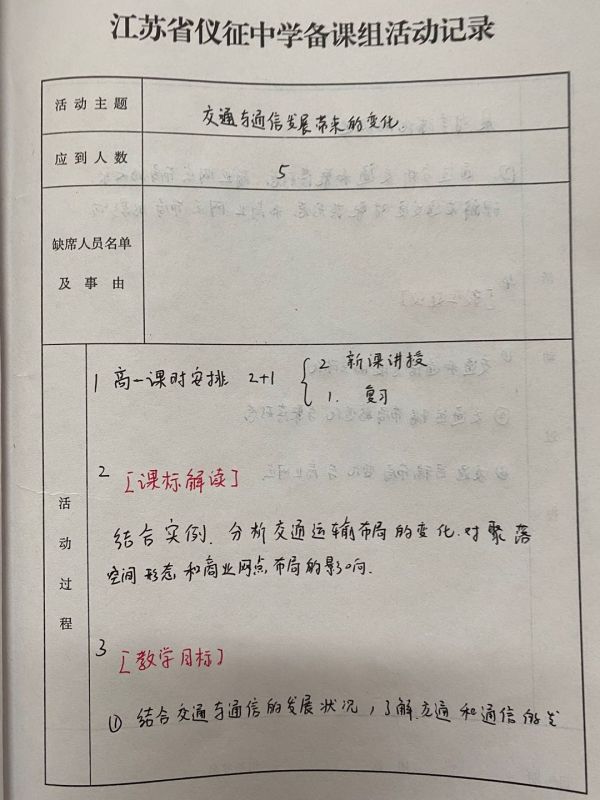 江苏省仪征中学备课组活动记录
活动主题
交通与通信发展带来的变化
应到人数
5
缺席人员名单
及事由
活动过程
1 高一课时安排 2+1 { 2 新课讲授
1. 复习
2 [课标解读]
结合实例.分析交通运输布局的变化.对聚落
空间形态和商业网点布局的影响.
3 [教学目标]
① 结合交通与通信的发展状况,了解交通和通信的发